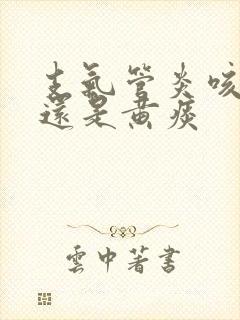 支氣管炎咳
還是黄痰
雲中著書